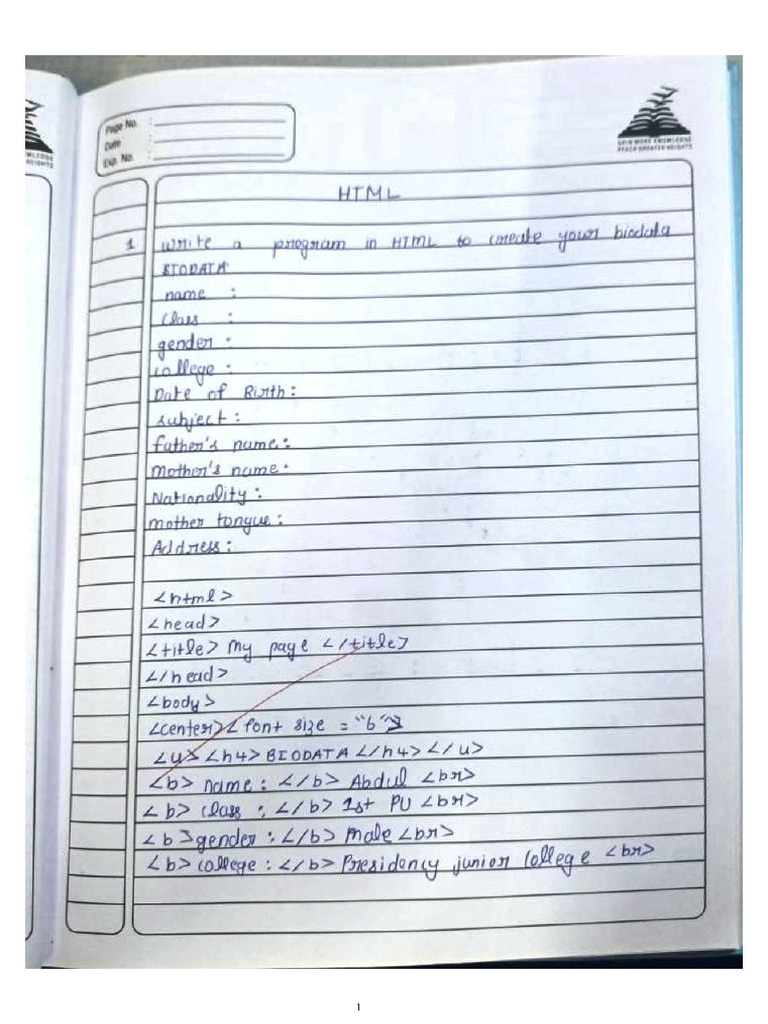 Page No. :
Date :
Exp. No. :
GAIN MORE KNOWLEDGE
REACH GREATER HEIGHTS
HTML
1 Write a program in HTML to create your biodata
BIODATA
name :
class :
gender :
college :
Date of Birth :
subject :
father's name :
mother's name :
Nationality :
mother tongue :
Address :
<html>
<head>
<title> my page </title>
</head>
<body>
<center> < font size = "6">
<u> <h4> BIODATA </h4> </u>
<b> name : </b> Abdul <br>
<b> class : </b> 1st PU <br>
<b> gender : </b> male <br>
<b> college : </b> Presidency junior College <br>
1